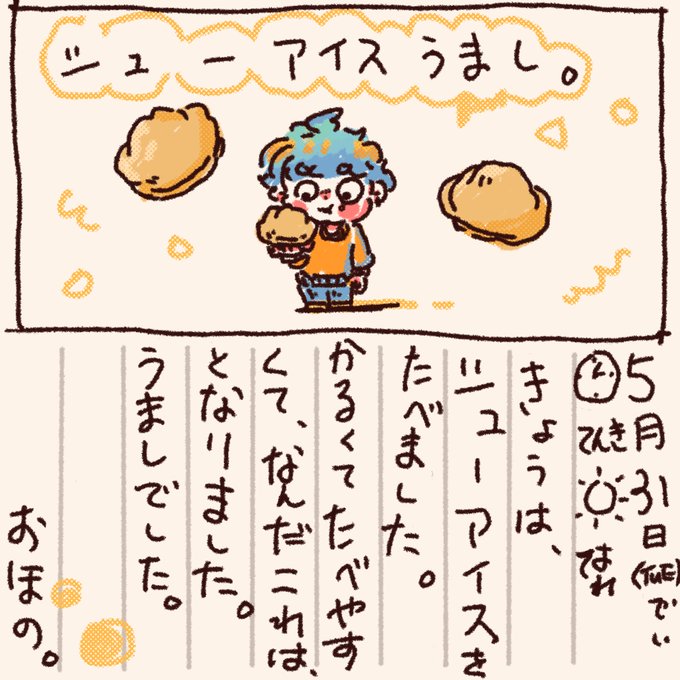 シューアイスうまし。
5月31日(TUE)でい
てんき はれ
きょうは、
シューアイスを
たべました。
かるくてたべやす
くて、なんだこれは、
となりました。
うましでした。
おほの。